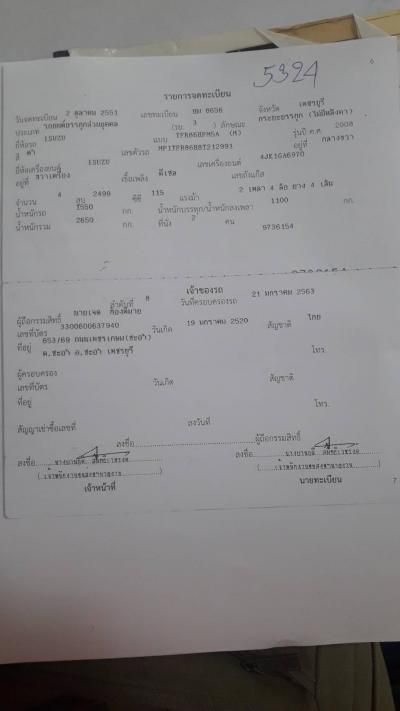 5324
รายการจดทะเบียน
วันจดทะเบียน 2 ตุลาคม 2551 เลขทะเบียน บม 8656 จังหวัด เพชรบุรี
ประเภท รถยนต์บรรทุกส่วนบุคคล (รย. 3 ) ลักษณะ กระบะบรรทุก (ไม่มีหลังคา)
ยี่ห้อรถ ISUZU แบบ TFR86HPM5A (M) รุ่นปี ค.ศ. 2008
สี ดำ เลขตัวรถ MP1TFR86H8T212991 อยู่ที่ กลางขวา
ยี่ห้อเครื่องยนต์ ISUZU เลขเครื่องยนต์ 4JK1GA6970
อยู่ที่ ขวาเครื่อง เชื้อเพลิง ดีเซล เลขถังแก๊ส
จำนวน 4 สูบ 2499 ซีซี 115 แรงม้า 2 เพลา 4 ล้อ ยาง 4 เส้น
น้ำหนักรถ 1550 กก. น้ำหนักบรรทุก/น้ำหนักลงเพลา 1100 กก.
น้ำหนักรวม 2650 กก. ที่นั่ง 2 คน
9736154
เจ้าของรถ
ลำดับที่ 8 วันที่ครอบครองรถ 21 มกราคม 2563
ผู้ถือกรรมสิทธิ์ นายเจต
เลขที่บัตร 3300600637940 วันเกิด 19 มกราคม 2520 สัญชาติ ไทย
ที่อยู่ 653/69 ถนนเพชรเกษม(ชะอำ)
ต.ชะอำ อ.ชะอำ เพชรบุรี โทร.
ผู้ครอบครอง
เลขที่บัตร วันเกิด สัญชาติ
ที่อยู่
โทร.
สัญญาเช่าซื้อเลขที่ ลงวันที่
ลงชื่อ ผู้ถือกรรมสิทธิ์
ลงชื่อ ลงชื่อ
เจ้าหน้าที่ นายทะเบียน
7